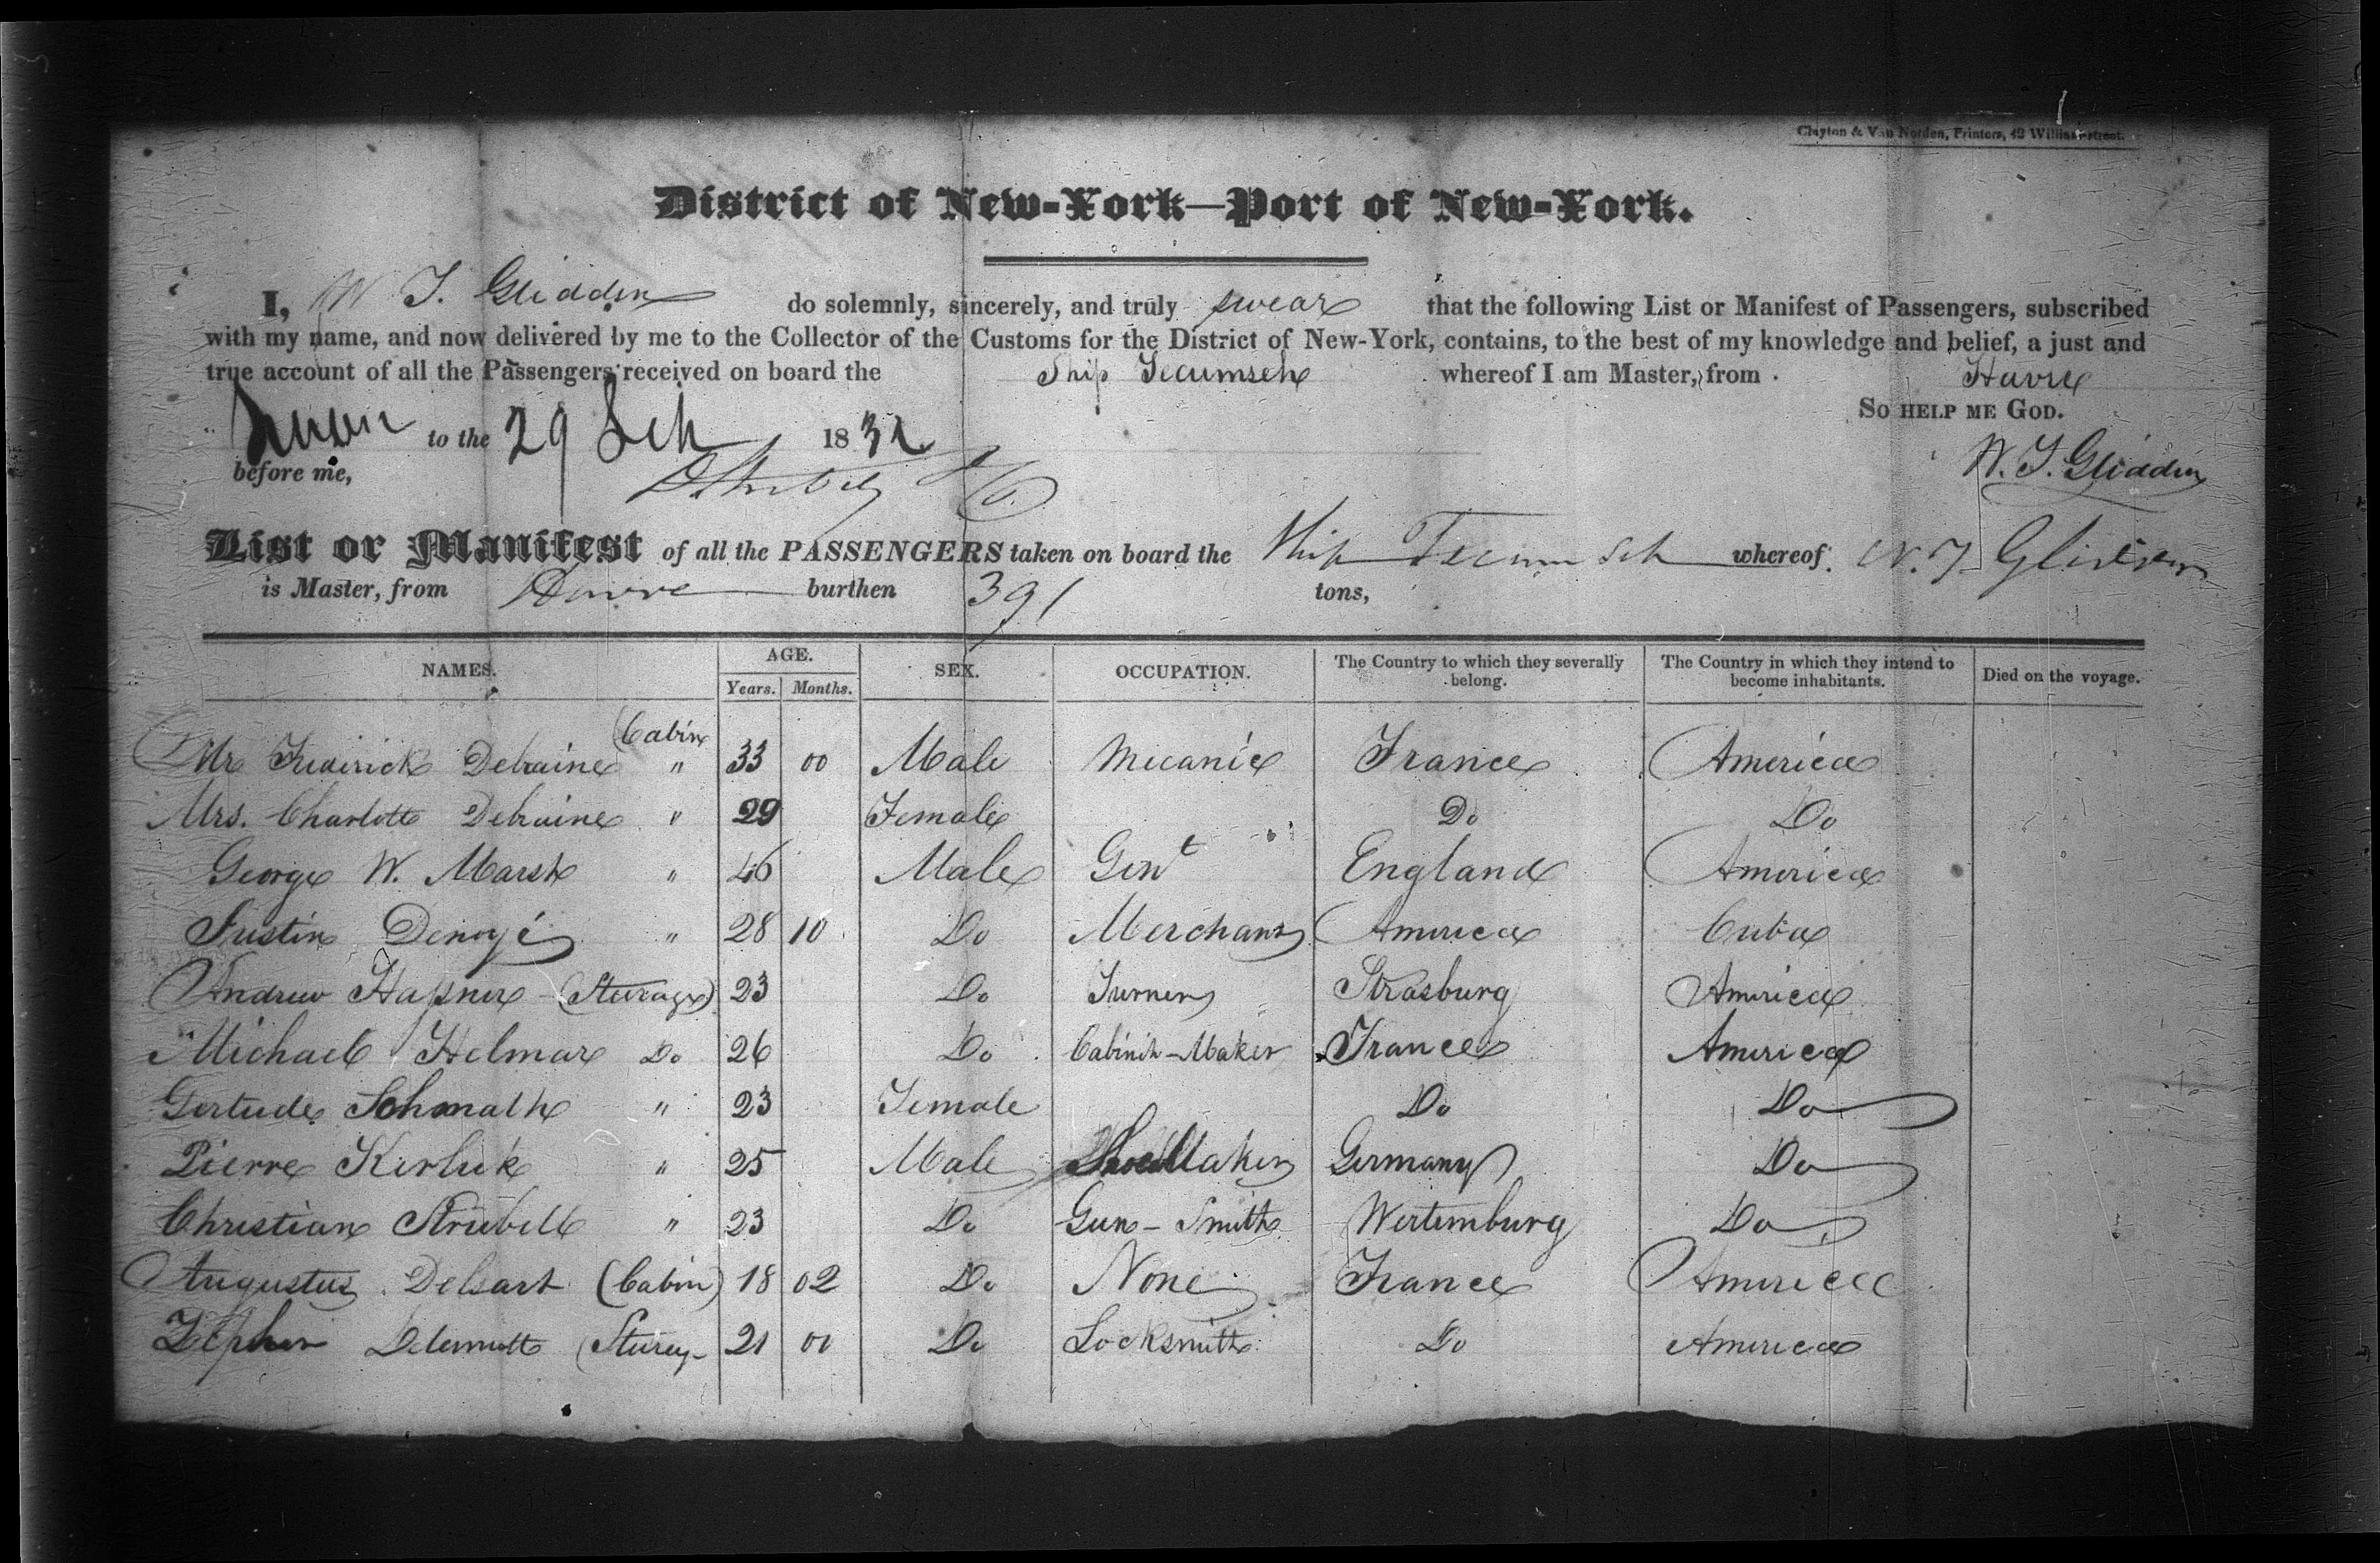 Clayton & Van Norden, Printers, 42 William-street.
District of New-York—Port of New-York.
I, W T. Glidden do solemnly, sincerely, and truly swear that the following List or Manifest of Passengers, subscribed
with my name, and now delivered by me to the Collector of the Customs for the District of New-York, contains, to the best of my knowledge and belief, a just and
true account of all the Passengers received on board the Ship Tecumseh whereof I am Master, from Havre
So help me God.
to the 29 1832
W. T. Glidden
before me,
List or Manifest of all the PASSENGERS taken on board the Ship Tecumseh whereof W. T. Glidden
is Master, from Havre burthen 391 tons,
NAMES. AGE. SEX. OCCUPATION. The Country to which they severally belong. The Country in which they intend to become inhabitants. Died on the voyage.
Years. Months.
Cabin
Mr Frederick Debraine " 33 00 Male Mecanic France America
Mrs. Charlotte Debraine " 29 Female Do Do
George W. Marsh " 46 Male Gent England America
Justin " 28 10 Do Merchant America Cuba
Andrew (Sterage) 23 Do Turner Strasburg America
Michael Helmar Do 26 Do Cabinit-Maker France America
Gertude Schmalk " 23 Female Do Do
Pierre Kerluk " 25 Male Shoe Maker Germany Do
Christian Strubell " 23 Do Gun-Smith Wertemburg Do
Augustus Delsart (Cabin) 18 02 Do None France America
(Sterag- 21 00 Do Locksmith Do America